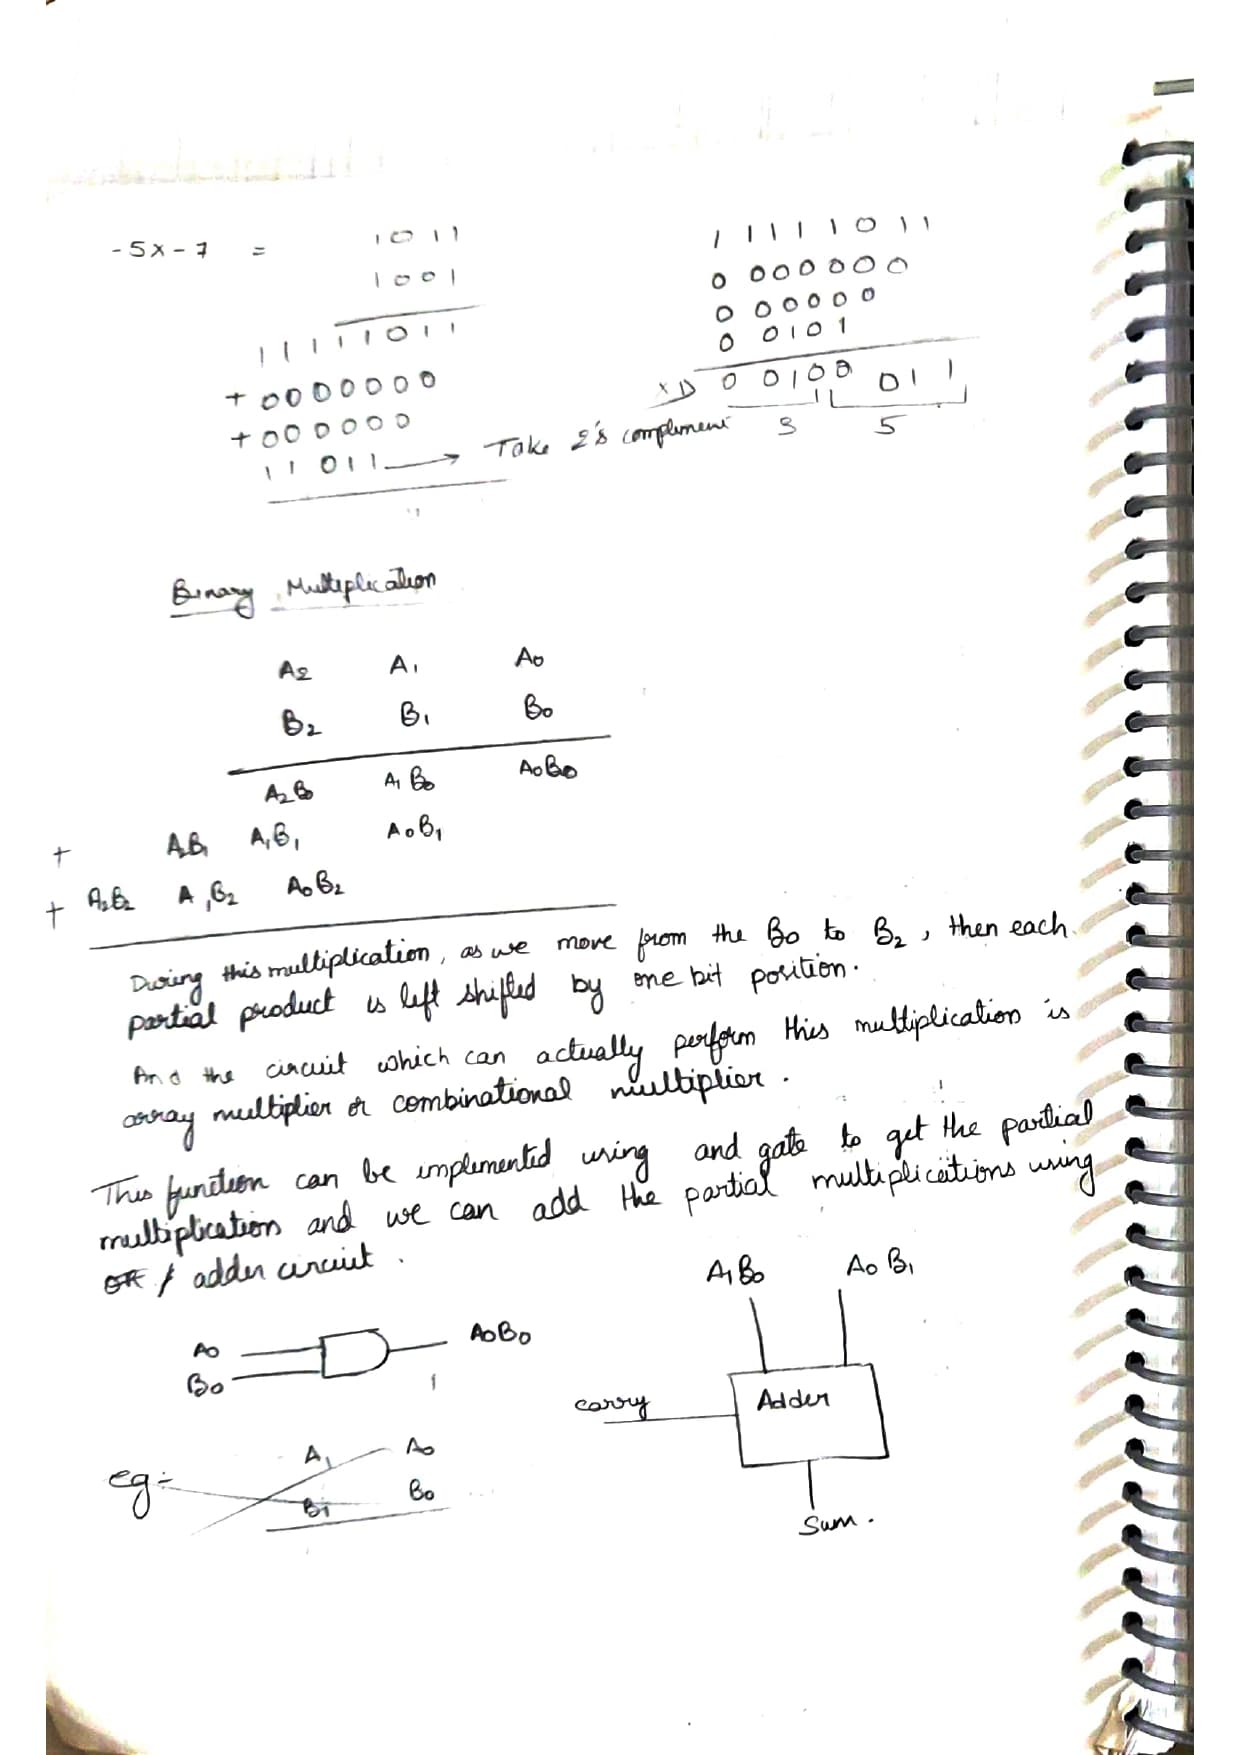 -5x-7 = 1011
1001
11111011
+ 0000000
+ 000000
11 011 → Take 2's compliment
1 1111011
0 000000
0 00000
0 0101
0 0100 011
3 5
Binary Multiplication
A2 A1 A0
B2 B1 B0
A2B0 A1B0 A0B0
+ A2B1 A1B1 A0B1
+ A2B2 A1B2 A0B2
During this multiplication, as we move from the B0 to B2, then each
partial product is left shifted by one bit position.
And the circuit which can actually perform this multiplication is
array multiplier or combinational multiplier.
This function can be implemented using and gate to get the partial
multiplication and we can add the partial multiplications using
adder circuit.
A0
B0
A0B0
A1B0 A0B1
carry
Adder
Sum.
eg:- A1 A0
B1 B0